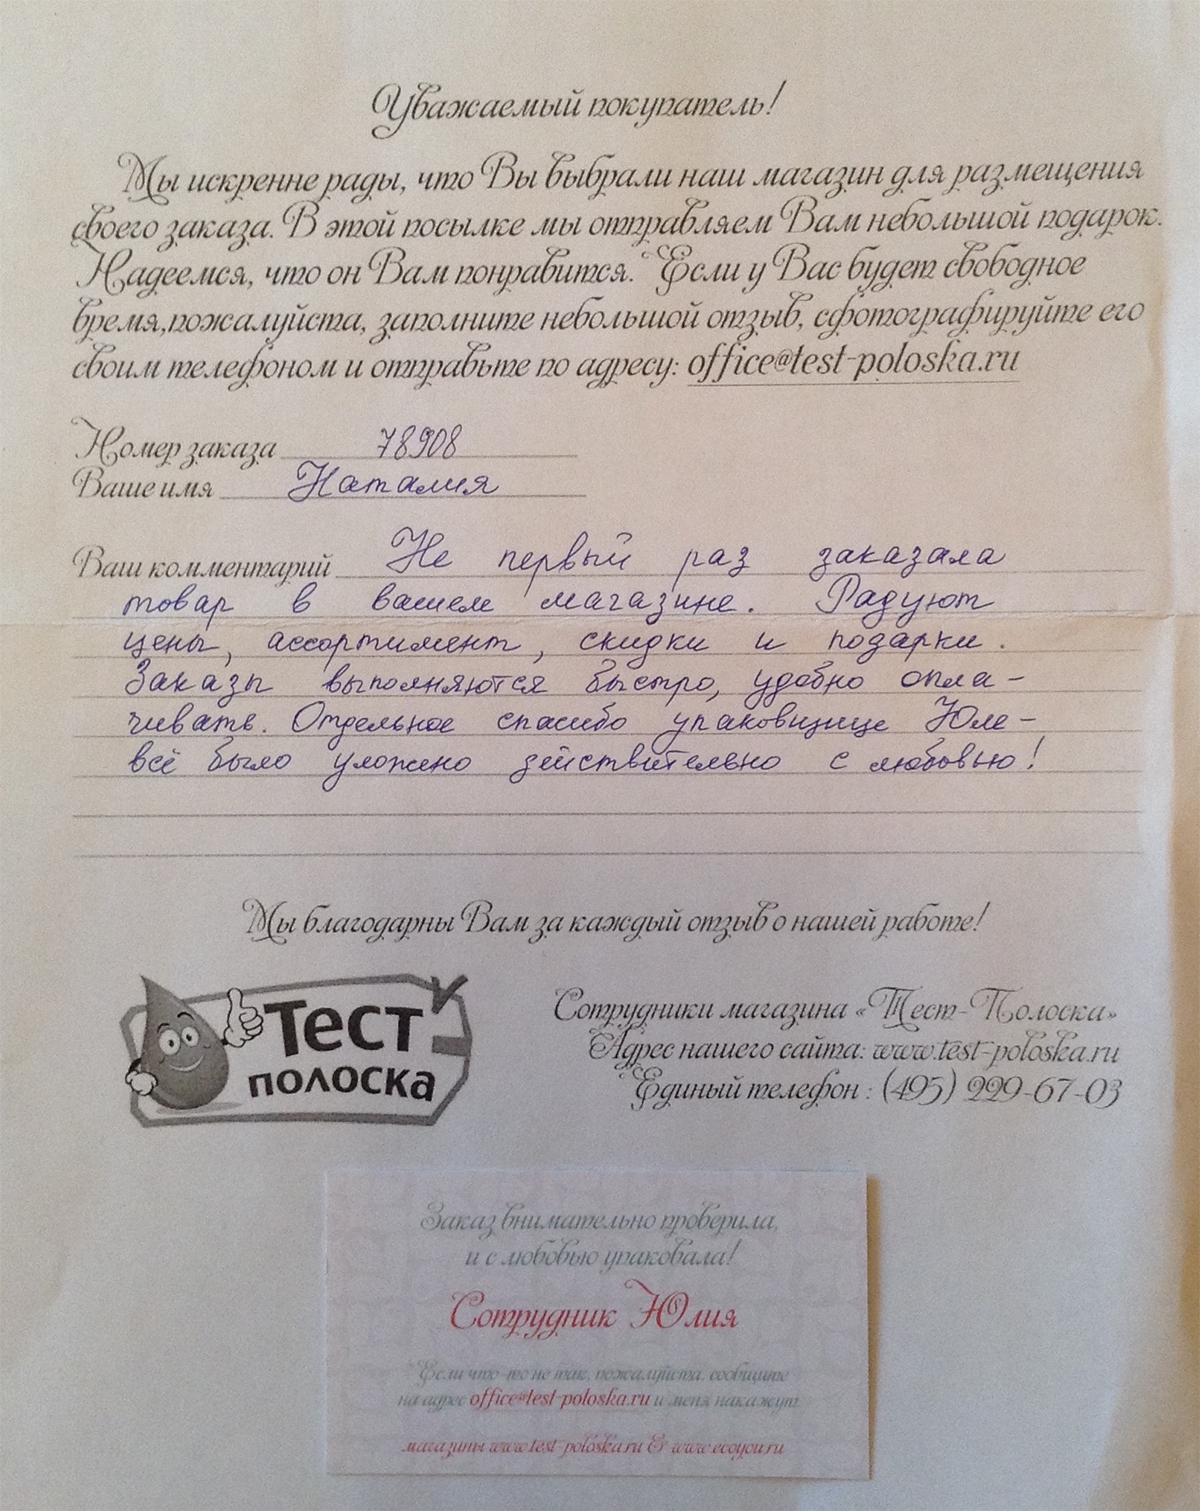 Уважаемый покупатель!
Мы искренне рады, что Вы выбрали наш магазин для размещения
своего заказа. В этой посылке мы отправляем Вам небольшой подарок.
Надеемся, что он Вам понравится. Если у Вас будет свободное
время,пожалуйста, заполните небольшой отзыв, сфотографируйте его
своим телефоном и отправьте по адресу: office@test-poloska.ru
Номер заказа 78908
Ваше имя Наталия
Ваш комментарий Не первый раз заказала
товар в вашем магазине. Радуют
цены, ассортимент, скидки и подарки.
Заказы выполняются быстро, удобно опла-
чивать. Отдельное спасибо упаковщице Юле-
всё было уложено действительно с любовью!
Мы благодарны Вам за каждый отзыв о нашей работе!
Тест
полоска
Сотрудники магазина «Тест-Полоска»
Адрес нашего сайта: www.test-poloska.ru
Единый телефон : (495) 229-67-03
Заказ внимательно проверила,
и с любовью упаковала!
Сотрудник Юлия
Если что-то не так, пожалуйста, сообщите
на адрес office@test-poloska.ru и меня накажут
магазины www.test-poloska.ru & www.ecoyou.ru